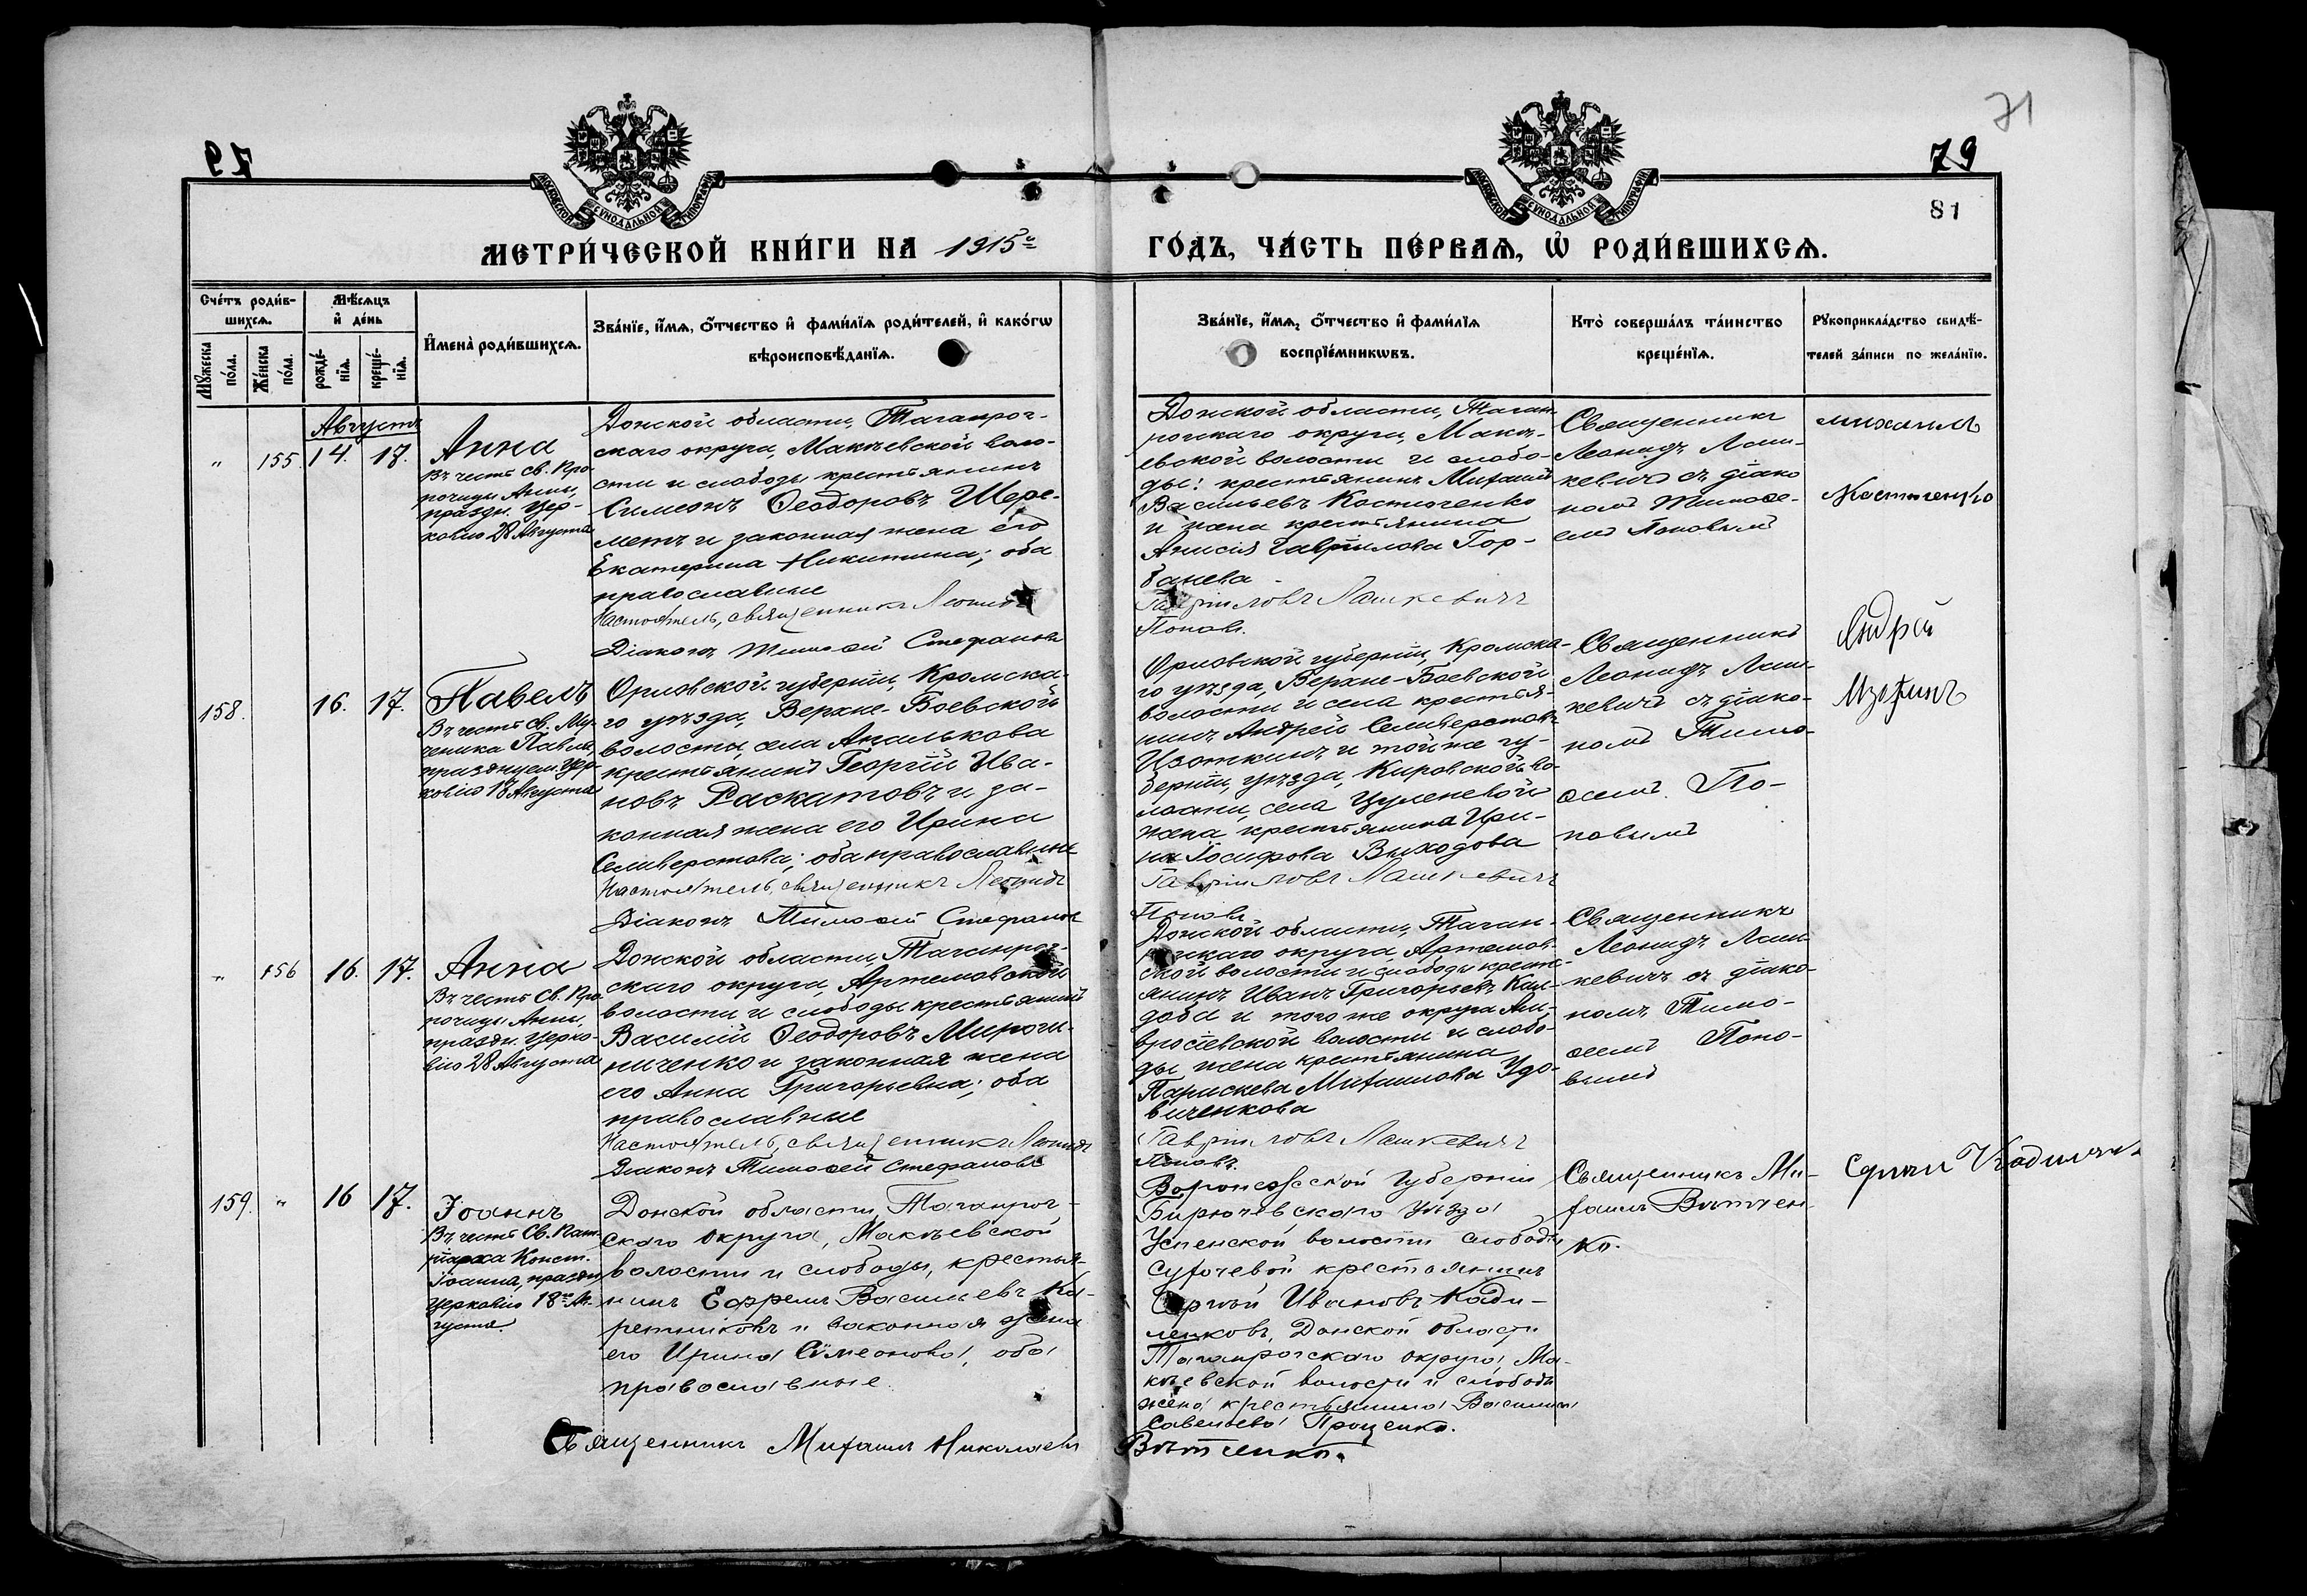 71
79
79
81
МЕТРИ́ЧЕСКОЙ КНИ́ГИ НА 1915й
ГО́ДЪ, ЧА́СТЬ ПЕ́РВАѦ, Ѡ҆ РОДИ́ВШИХСѦ.
Сче́тъ роди́в-
шихсѧ.
Мѣ́сѧцъ
и҆ де́нь
И҆мена̀ роди́вшихсѧ.
Зва́нїе, и҆́мѧ, ѻ҆́тчество и҆ фами́лїѧ роди́телей, и҆ како́гѡ
вѣроисповѣ́данїѧ.
Мꙋ́жеска
по́ла.
Же́нска
по́ла.
рожде́-
нїѧ.
креще́-
нїѧ.
Зва́нїе, и҆́мѧ, ѻ҆́тчество и҆ фами́лїѧ
воспрїе́мникѡвъ.
Кто̀ соверша́лъ та́инство
креще́нїѧ.
Рꙋкоприкла́дство свидѣ́-
телей за́писи по жела́нїю.
Августъ
" 155. 14. 17.
Анна
Въ честь св. Про-
рочицы Анны,
праздн. Цер-
ковію 28 Августа
Донской области, Таганрог-
скаго округа, Макѣевской воло-
сти и слободы крестьянинъ
Симеонъ Ѳеодоровъ Шере-
метъ и законная жена его
Екатерина Никитина; оба
православные
Настоятель, священникъ Леонидъ
Діаконъ Тимоѳей Стефановъ
Донской области, Таган-
рогскаго округа, Макѣ-
евской волости и слобо-
ды: крестьянинъ Михаилъ
Васильевъ Костюченко
и жена крестьянина
Анисія Гавріилова Гор-
банева
Гавріиловъ Лашкевичъ
Поповъ.
Священникъ
Леонидъ Лаш-
кевичъ съ діако
номъ Тимоѳе-
емъ Поповымъ
михаилъ
Костюченко
158. 16. 17.
Павелъ
Въ честь св. Му-
ченика Павла,
празднуем. Цер-
ковію 18 Августа
Орловской губерніи, Кромска-
го уѣзда, Верхне-Боевской
волости, села Апалькова
крестьянинъ Георгій Ива-
новъ Раскатовъ и за-
конная жена его Ирина
Селиверстова; оба православные
Настоятель, священникъ Леонидъ
Діаконъ Тимоѳей Стефановъ
Орловской губерніи, Кромска-
го уѣзда, Верхне-Боевской
волости и села крестья-
нинъ Андрей Селиверстовъ
Изоткинъ и той же гу-
берніи, уѣзда, Кировской во-
лости, села
жена крестьянина Ири-
на Іосифова Выходова
Гавріиловъ Лашкевичъ
Поповъ
Священникъ
Леонидъ Лаш-
кевичъ съ діако-
номъ Тимо-
ѳеемъ По-
повымъ
Андрей
" 156 16. 17.
Анна
Въ честь Св. Про-
рочицы Анны,
праздн. Церко-
вію 28 Августа
Донской области, Таганрог-
скаго округа, Артемовской
волости и слободы крестьянинъ
Василій Ѳеодоровъ Мирош-
ниченко и законная жена
его Анна Григорьевна; оба
православные
Настоятель, священникъ Леонидъ
Діаконъ Тимоѳей Стефановъ
Донской области, Таган-
рогскаго округа, Артемов-
ской волости и слободы кресть-
янинъ Иванъ Григорьевъ
и того же округа Ам-
вросіевской волости и слобо-
ды, жена крестьянина
Параскева Михаилова Удо-
виченкова
Гавріиловъ Лашкевичъ
Поповъ.
Священникъ
Леонидъ Лаш-
кевичъ съ діако-
номъ Тимо-
ѳеемъ Попо-
вымъ
159. " 16 17.
Іоаннъ
Въ честь Св. Пат-
ріарха Конст.
Іоанна, праздн.
Церковію 18го Ав-
густа.
Донской области, Таганрог-
скаго округа, Макѣевской
волости и слободы, крестья-
нинъ Ефремъ Васильевъ Ка-
ретниковъ и законная жена
его Ирина Симеонова, оба
православные
Воронежской Губерніи
Бирючевскаго Уѣзда
Успенской волости слободы
крестьянинъ
Сергѣй Ивановъ Кади-
ленковъ, Донской области
Таганрогскаго округа, Ма-
кѣевской волости и слободы
жена крестьянина Василиса
Савельева Проценко.
Священникъ Ми-
хаилъ Витчен-
ко.
Священникъ Михаилъ Николаевъ Витченко.